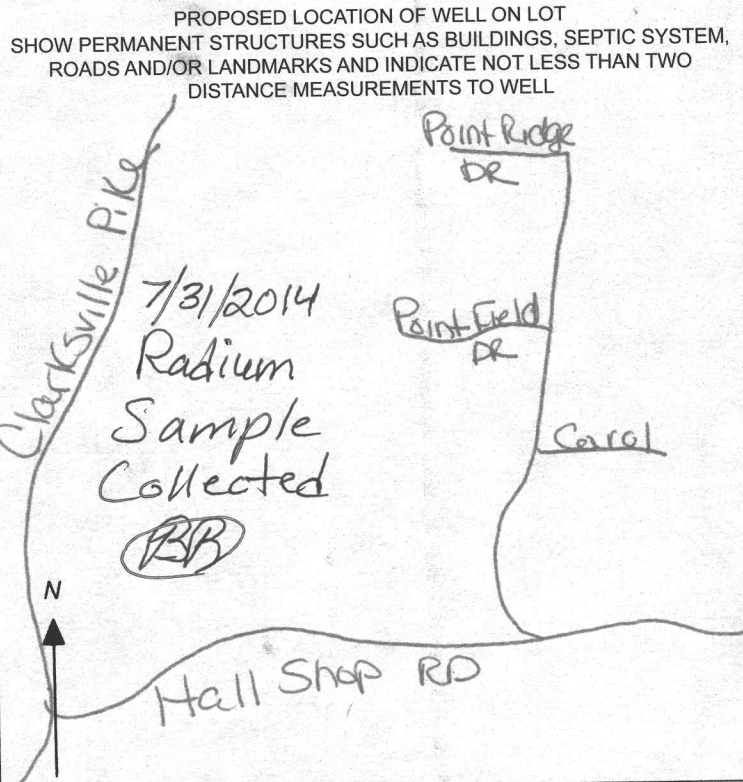 PROPOSED LOCATION OF WELL ON LOT
SHOW PERMANENT STRUCTURES SUCH AS BUILDINGS, SEPTIC SYSTEM,
ROADS AND/OR LANDMARKS AND INDICATE NOT LESS THAN TWO
DISTANCE MEASUREMENTS TO WELL
Point Ridge
DR
Clarksville Pike
7/31/2014
Radium
Sample
Collected
BB
Point Field
DR
Carol
N
Hall Shop RD